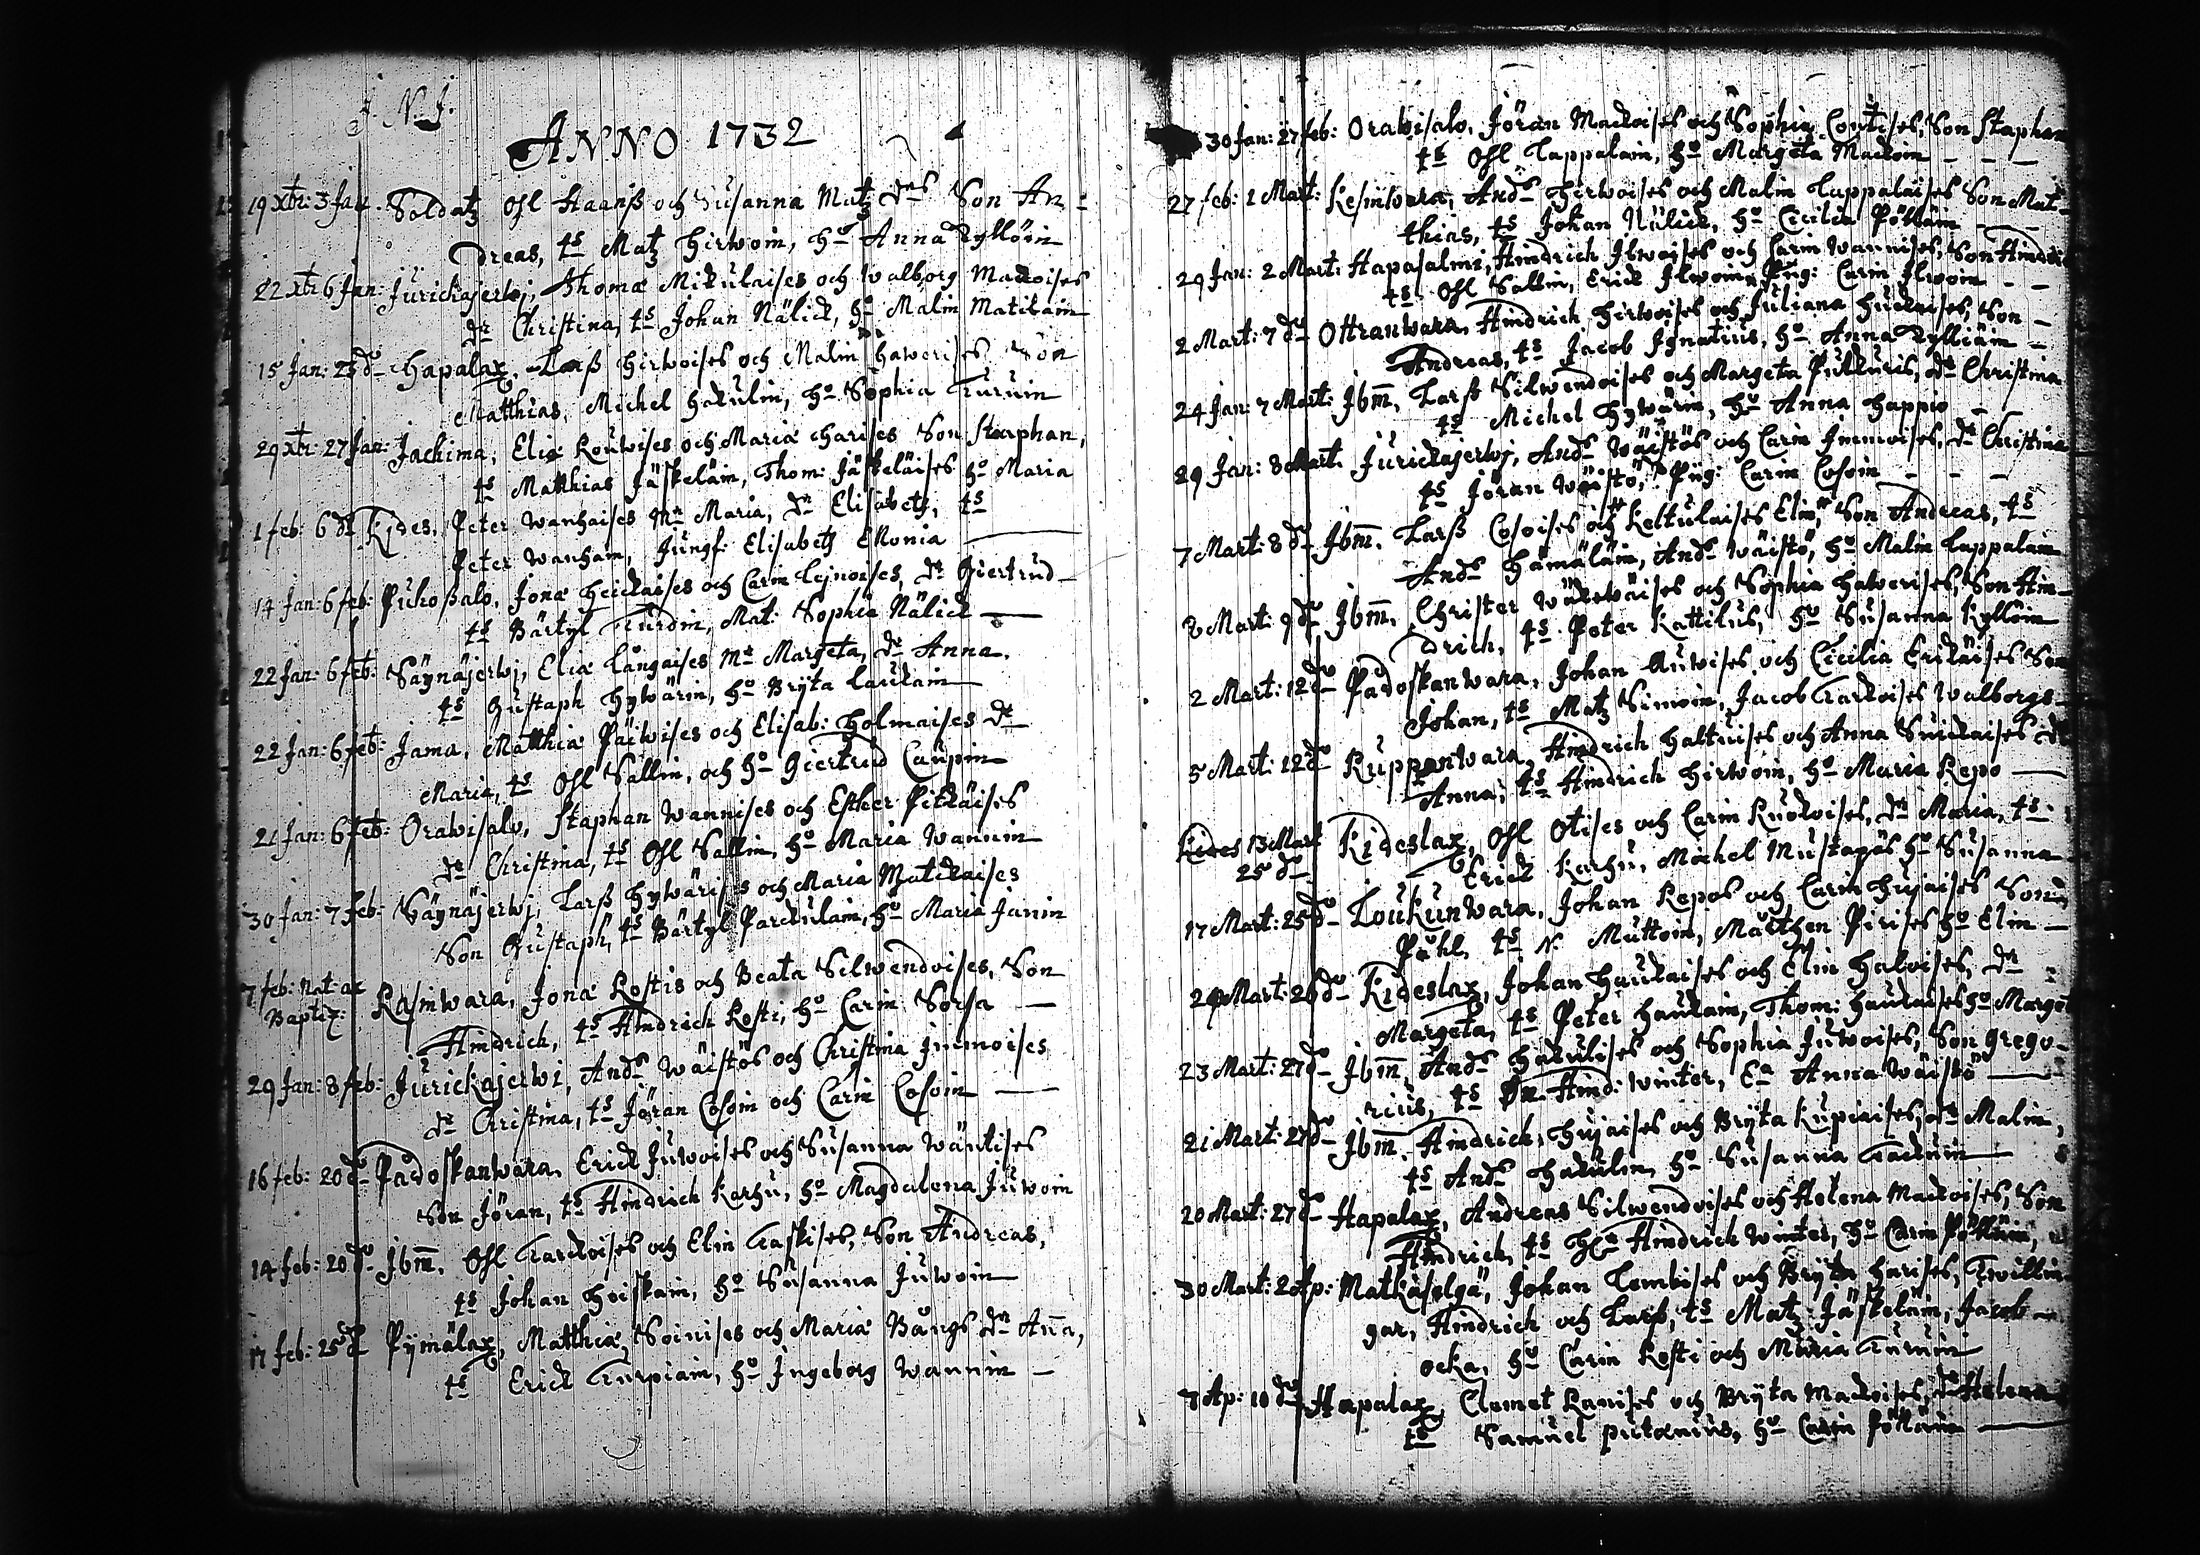 J. N. J.
ANNO 1732
19 Xbr: 3 Jan: Soldatz Ohl Haanß och Susanna Matz drs Son An-
dreas, ts Matz Hirwoin, ho Anna Kyllöin
22 Xbr 6 Jan: Jurickajerwj, Thomæ Mikulaises och Walborg Mackoises
dr Christina, ts Johan Nälick, ho Malin Matikain
15 Jan: 25 do Hapalax, Larß Hirwoises och Malin Hawerises Son
Matthias, Michel Hakulin, ho Sophia Turuin
29 Xbr: 27 Jan: Jachima, Eliæ Rouwises och Maria Harises Son Staphan,
ts Matthias Jäskeläin, Thom: Jäskeläises ho Maria
1 feb: 6 do Kides, Peter Wanhaises Mr Maria, dr Elisabetz, ts
Peter Wanhain, Jungf: Elisabetz Ekonia
14 Jan: 6 feb: Puhoßalo, Jonæ Heickaises och Carin Lejnoises, dr Giertrud
ts Bärtyl Turoin, Mat: Sophia Nälick
22 Jan: 6 feb: Säynäjerwj, Eliæ Långaises Mr Margeta, dr Anna,
ts Gustaph Hywärin, ho Bryta Laukain
22 Jan: 6 feb: Jama, Matthiæ Päiwises och Elisab: Holmaises dr
Maria, ts Ohl Sallin, och ho Giertrud Caupin
21 Jan: 6 feb: Orawisalo, Staphan Wannises och Esther Pitkäises
dr Christina, ts Ohl Sallin, ho Maria Wannin
30 Jan: 7 feb: Säynäjerwj, Larß Hywärises och Maria Matikaises
Son Gustaph, ts Bärtyl Parckulain, ho Maria Janin
7 feb: nat: ac Rasiwara, Jonæ Rostis och Beata Silwendoises, Son
Baptiz: Hindrich, ts Hindrich Rosti, ho Carin Sorsa
29 Jan: 8 feb: Jurickajerwi, Ands Wäistös och Christina Immoises
dr Christina, ts Jöran Cosoin och Carin Cosoin
16 feb: 20 do Padoskanwara, Erick Juwoises och Susanna Wäntises
Son Jöran, ts Hindrich Karhu, ho Magdalena Juwoin
14 feb: 20 do Ibm, Ohl Tarckoises och Elin Taskises, Son Andreas,
ts Johan Hoiskain, ho Susanna Juwoin
17 feb: 25 do Pymälax, Matthiæ Soinises och Maria Bångs dr Anna,
ts Erick Turpiain, ho Ingeborg Wannin
30 Jan: 27 feb: Orawisalo, Jöran Mackoises och Sophia Contises, Son Staphan
ts Ohl Lappalain, ho Margeta Mackoin
27 feb: 1 Mart: Kesiwara, Ands Hirwoises och Malin Lappalaises Son Mat-
thias, ts Johan Nälick, ho Cicilia Pöllän
29 Jan: 2 Mart: Hapasalmi, Hindrich Ilwoises och Carin Wannises, Son Hindric
ts Ohl Sallin, Erick Ilwoin, Pig: Carin Ilwoin
2 Mart: 7 do Ottranwara, Hindrich Hirwoises och Juliana Huckaises, Son
Andreas, ts Jacob Ignatius, ho Anna Kylliäin
24 Jan: 7 Mart: Ibm, Larß Silwendoises och Margeta Pulkuris, dr Christina
ts Michel Hywärin, ho Anna Happio
29 Jan: 8 Mart: Jurickajerwj, Ands Wäistös och Carin Immoises, dr Christina
ts Jöran Wäistö, Pig: Carin Cosoin
7 Mart: 8 do Ibm, Larß Cosoises och Keltulaises Elin, Son Andreas, ts
Ands Hämäläin, Ands Wäistö, ho Malin Lappalain
2 Mart: 9 do Ibm, Christer Wäkewäises och Sophia Hawerises, Son Hin-
drich, ts Peter Kattilus, ho Susanna Kyllöin
2 Mart: 12 do Padoskanwara, Johan Auwises och Cicilia Erikäises Son
Johan, ts Matz Simoin, Jacob Tarckoises Walborgs
5 Mart: 12 do Ruppanwara, Hindrich Haltuises och Anna Suickaises dr
Anna, ts Hindrich Hirwoin, ho Maria Repo
Kides 13 Mart Kideslax, Ohl Otises och Carin Ruokoises, dr Maria, ts
25 do Erick Karhu, Michel Mustapäs ho Susanna
17 Mart: 25 do Loukunwara, Johan Repos och Carin Hujaises Son
Påhl, ts N. Muttoin, Mårthen Pirises ho Elin
24 Mart: 26 do Kideslax, Johan Haukaises och Elin Haloises, dr
Margeta, ts Peter Haukain, Thom: Haukaises ho Marget
23 Mart: 27 do Ibm, Ands Hakulises och Sophia Juwoises, Son Grego-
rius, ts Hind: Winter, Ea Anna Wäistö
21 Mart: 27 do Ibm, Hindrich Hujaises och Bryta Kupiaises, dr Malin,
ts Ands Hakulin, ho Susanna Tackuin
20 Mart: 27 do Hapalax, Andreas Silwendoises och Helena Mackoises, Son
Hindrich, ts Hindrich Winter, ho Carin Pölläin,
30 Mart: 2 Ap: Matkaselgä, Johan Lembises och Bryta Harises, Twillin-
gar, Hindrich och Larß, ts Matz Jäskeläin, Jacob
ocka, ho Carin Rosti och Maria Turuin
7 Ap: 10 do Hapalax, Clemet Ranises och Bryta Mackoises, dr Helena
ts Samuel Putænius, ho Carin Pölläin